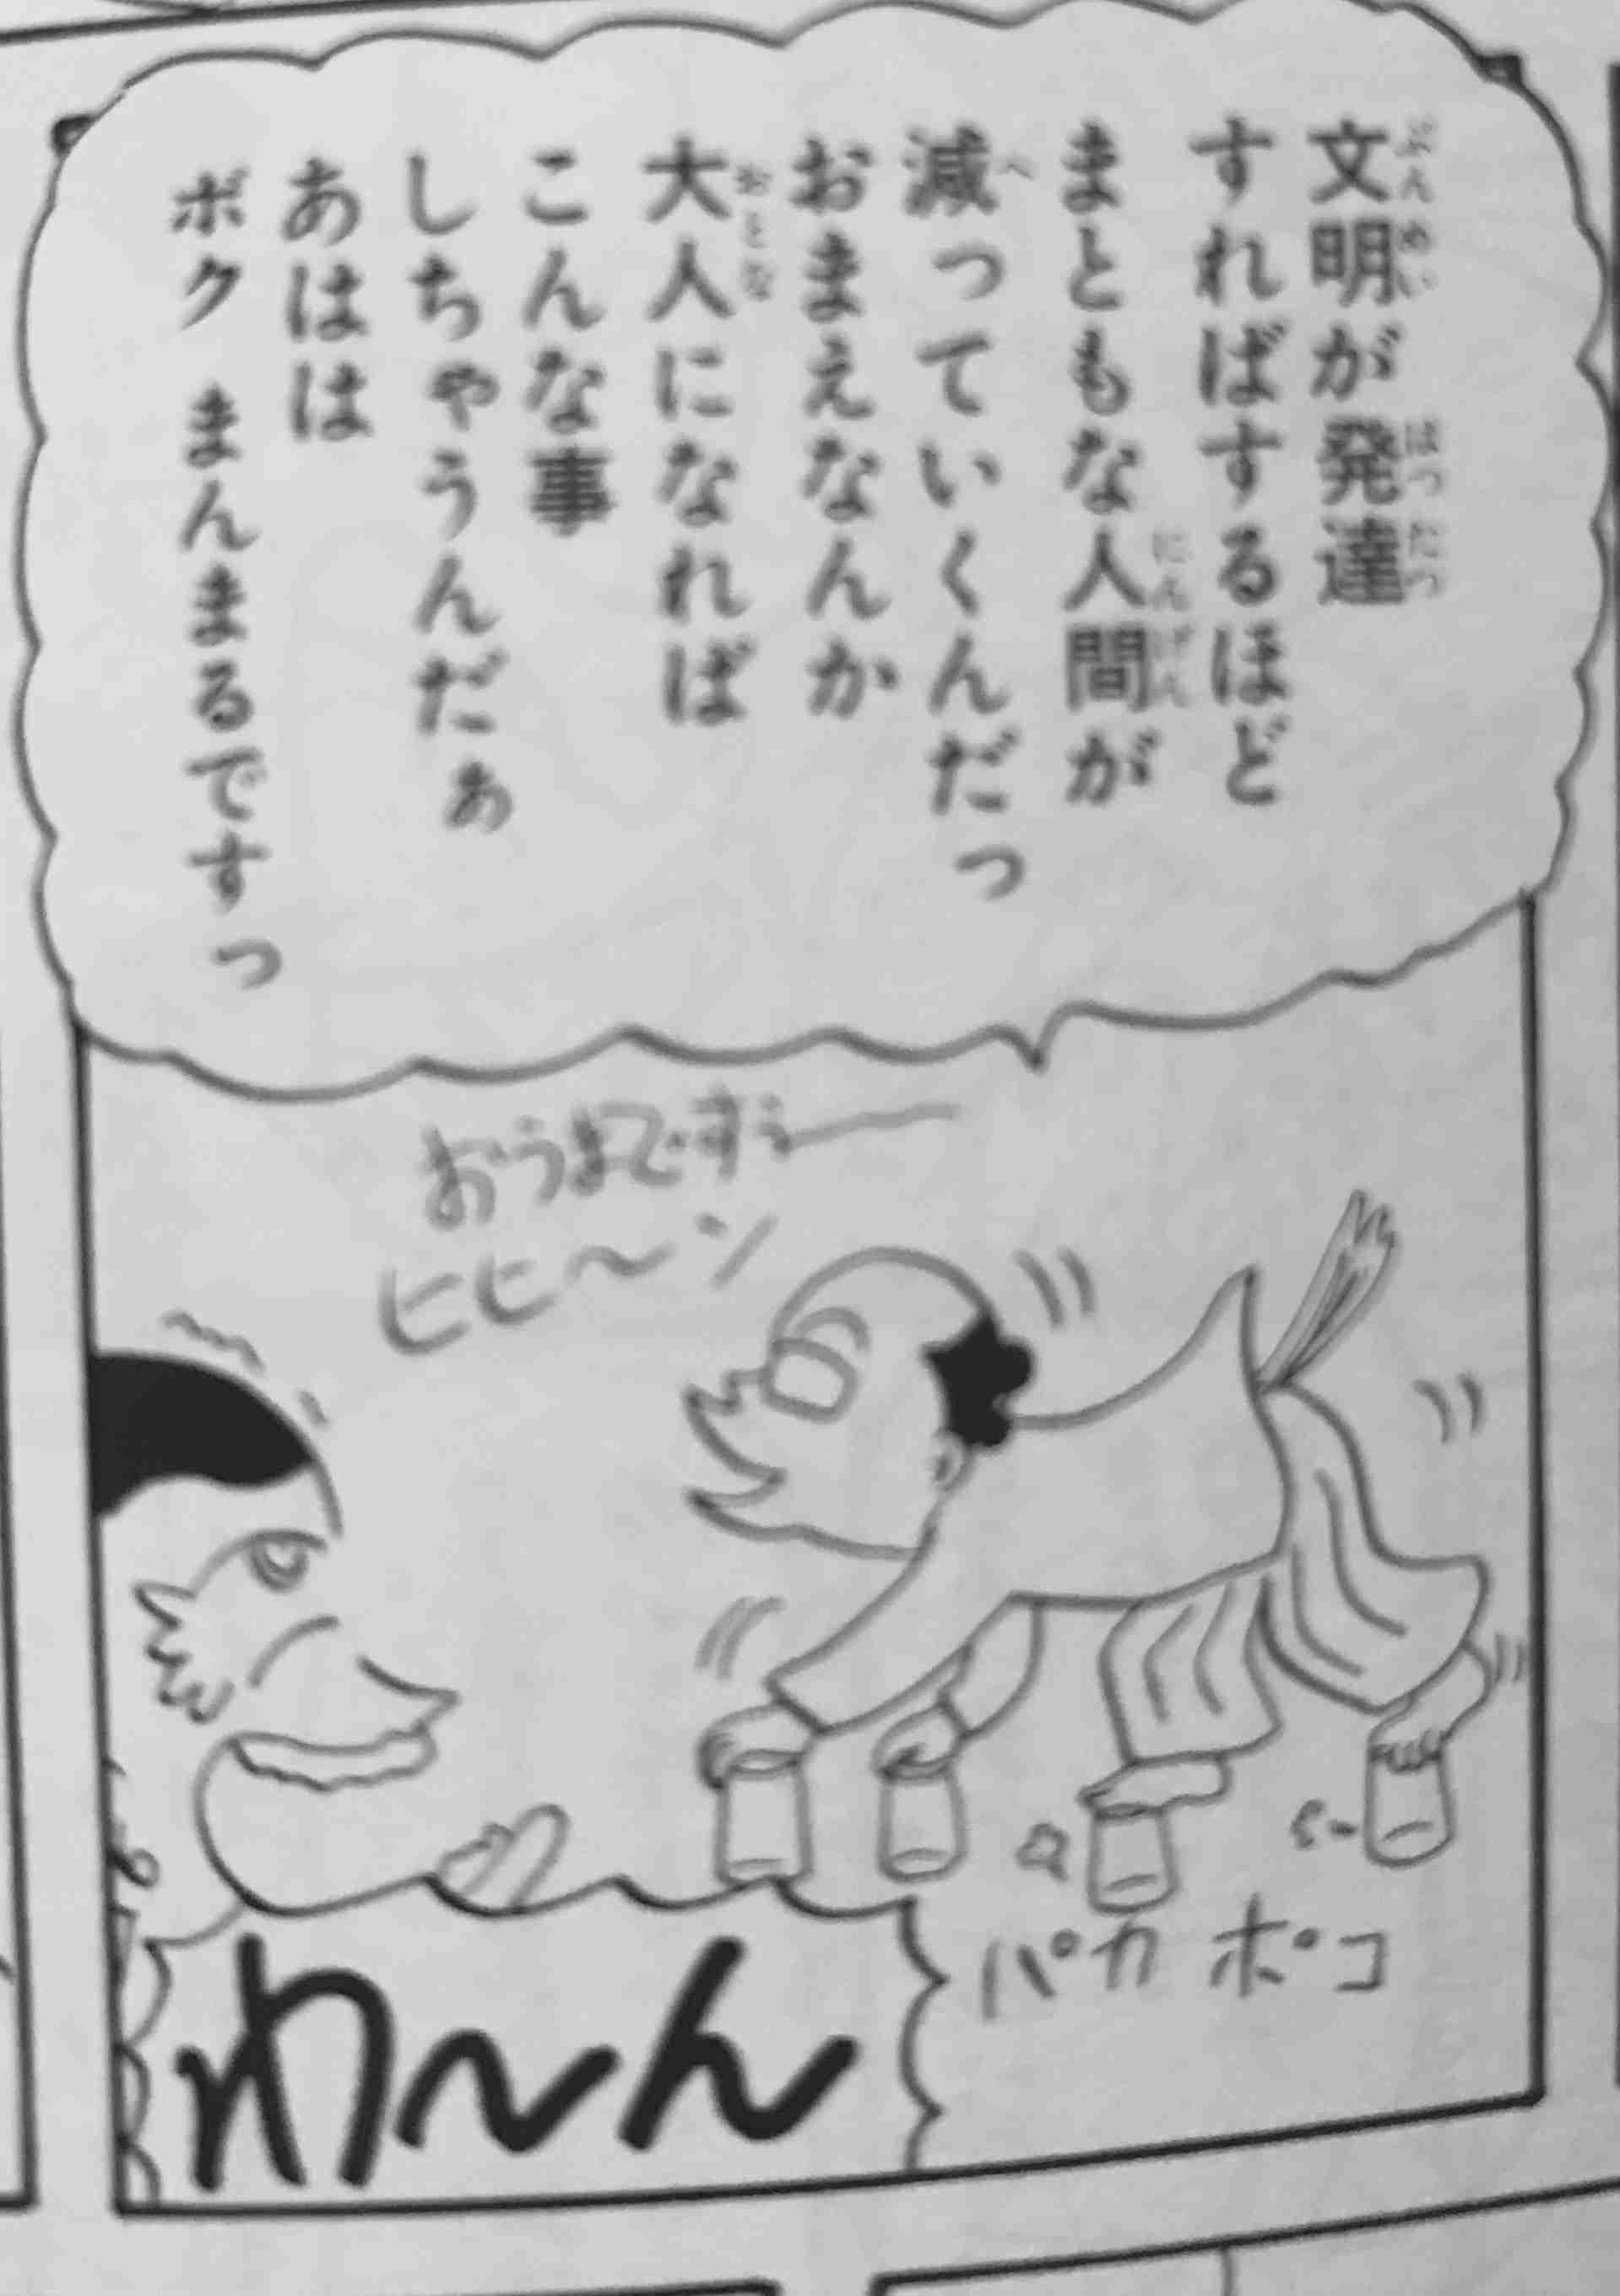 文明が発達
すればするほど
まともな人間が
減っていくんだっ
おまえなんか
大人になれば
こんな事
しちゃうんだぁ
あはは
ボク まんまるですっ
おうまですぅー
ヒヒ〜ン
パカ ポコ
わ〜ん